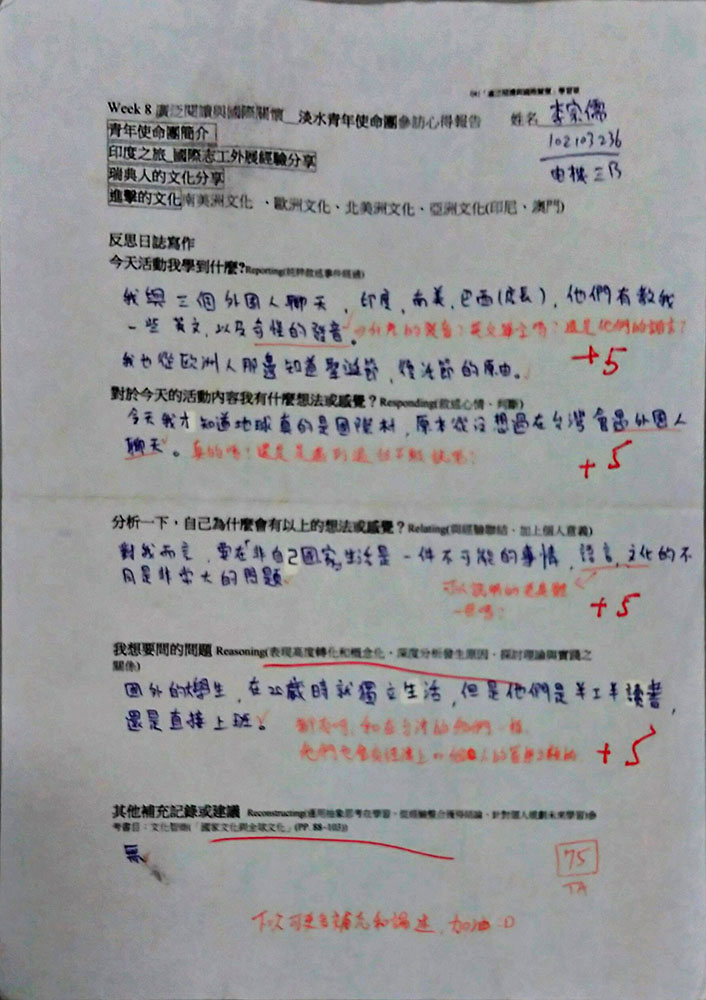 041「廣泛閱讀與國際關懷」學習單
Week 8 廣泛閱讀與國際關懷__淡水青年使命團參訪心得報告 姓名 李宗儒
102103236
電機三B
青年使命團簡介
印度之旅_國際志工外展經驗分享
瑞典人的文化分享
進擊的文化南美洲文化 、歐洲文化、北美洲文化、亞洲文化(印尼、澳門)
反思日誌寫作
今天活動我學到什麼?Reporting(純粹敘述事件經過)
我與三個外國人聊天,印度,南美,巴西(成長),他們有教我
一些英文,以及奇怪的發音。什麼的發音?英文單字嗎?還是他們的語言?
我也從歐洲人那邊知道聖誕節,復活節的原由。
+5
對於今天的活動內容我有什麼想法或感覺?Responding(敘述心情、判斷)
今天我才知道地球真的是國際村,原本從沒想過在台灣會遇外國人
聊天。真的嗎?還是是遇到過但不敢說呢?
+5
分析一下,自己為什麼會有以上的想法或感覺?Relating(與經驗聯結、加上個人意義)
對我而言,要在「非自己國家」生活是一件不可能的事情,語言,文化的不
同是非常大的問題
可以說明的更具體
一些嗎?
+5
我想要問的問題 Reasoning(表現高度轉化和概念化、深度分析發生原因、探討理論與實踐之
關係)
國外的大學生,在20歲時就獨立生活,但是他們是半工半讀書,
還是直接上班。
都有啊,和在台灣的我們一樣
+5
其他補充記錄或建議 Reconstructing(運用抽象思考在學習、從經驗整合獲得結論、針對個人規劃未來學習)參
考書目:文化智商(「國家文化與全球文化」(PP. 88~103))
無
75
TA
下次可更多補充和論述,加油 :D